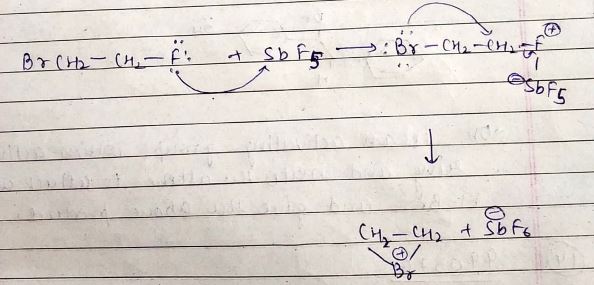 BrCH₂–CH₂–F̈: + SbF₅ ⟶ :B̈r–CH₂–CH₂–F⊕
⊖SbF₅
↓
CH₂–CH₂ + SbF₆⊖
⊕
Br